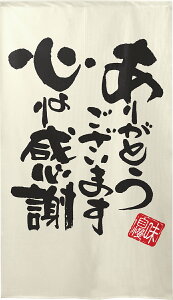 ありがとう
ございます
心は感謝